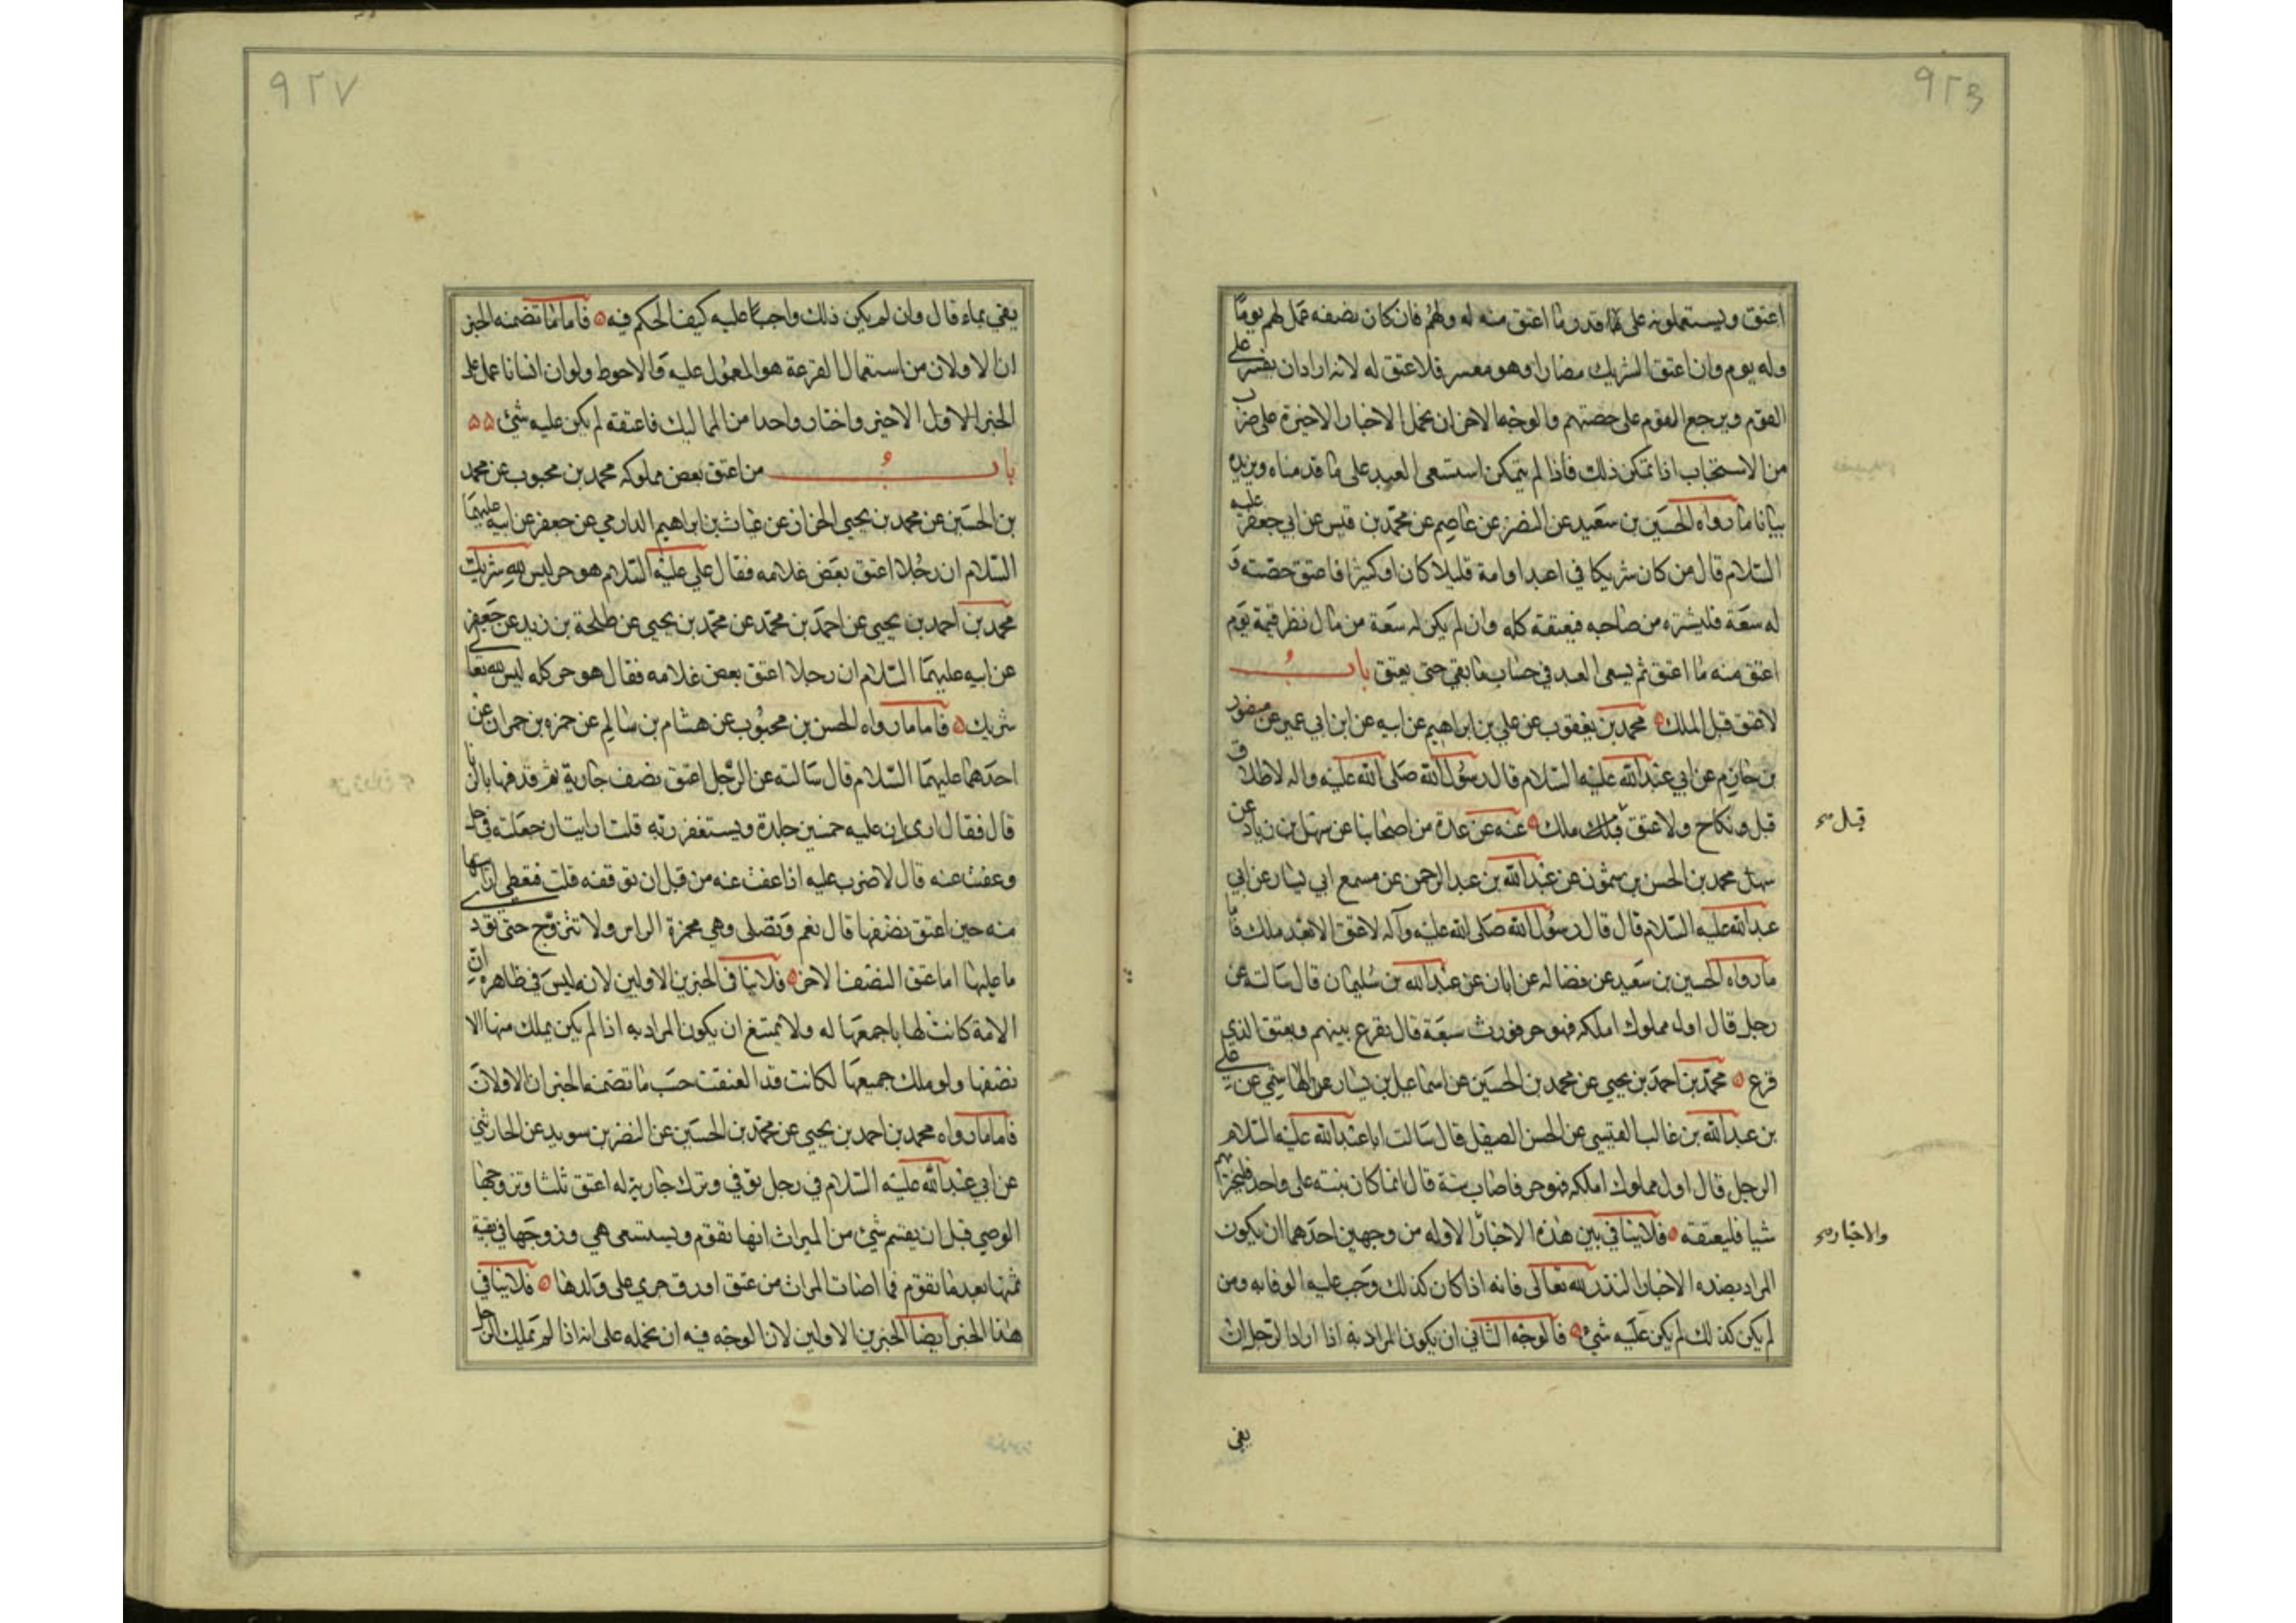 ٩٢٦
اعتق ويستعملونه على قدر ما اعتق منه له ولهم فان كان نصفه عمل لهم يوما
وله يوم وان اعتق الشريك مضارا وهو معسر فلا عتق له لانه اراد ان يفسد على
القوم ويرجع القوم على حصتهم والوجه الاخر ان نحمل الاخبار الاخيرة على ضرب
من الاستحباب اذا تمكن ذلك فاذا لم يتمكن استسعى العبد على ما قدمناه ويزيده
بيانا ما رواه الحسين بن سعيد عن النضر عن عاصم عن محمد بن قيس عن ابي جعفر عليه
السلام قال من كان شريكا في اعبد او امة قليلا كان او كثيرا فاعتق حصته و
له سعة فليشتره من صاحبه فيعتقه كله وان لم يكن له سعة من مال نظر قيمة يوم
اعتق منه ما اعتق ثم يسعى العبد في حساب ما بقي حتى يعتق باب
لا عتق قبل الملك محمد بن يعقوب عن علي بن ابراهيم عن ابيه عن ابن ابي عمير عن منصور
بن حازم عن ابي عبد الله عليه السلام قال رسول الله صلى الله عليه واله لا طلاق
قبل ونكاح ولا عتق قبلك ملك عنه عن عدة من اصحابنا عن سهل بن زياد عن
سهل محمد بن الحسن بن شمون عن عبد الله بن عبد الرحمن عن مسمع ابي يسار عن ابي
عبد الله عليه السلام قال قال رسول الله صلى الله عليه وآله لا عتق الا بعد ملك فاما
ما رواه الحسين بن سعيد عن فضاله عن ابان عن عبد الله بن سليمان قال سالته عن
رجل قال اول مملوك املكه فهو حر فورث سبعة قال يقرع بينهم ويعتق الذي
قرع محمد بن احمد بن يحيى عن محمد بن الحسين عن اسماعيل بن يسار عن الهاشمي عن علي
بن عبد الله بن غالب القيسي عن الحسن الصيقل قال سالت ابا عبد الله عليه السلام
الرجل قال اول مملوك املكه فهو حر فاصاب ستة قال انما كان نيته على واحد فليختر ايهم
شيا فليعتقه فلا ينافي بين هذه الاخبار الاوله من وجهين احدهما ان يكون
المراد بهذه الاخبار النذر لله تعالى فانه اذا كان كذلك وجب عليه الوفا به ومن
لم يكن كذلك لم يكن عليه شيئ فالوجه الثاني ان يكون المراد به اذا اراد الرجل ان
قبل
والاخبار
يفي
٩٢٧
يفي بماء قال وان لم يكن ذلك واجبا عليه كيف الحكم فيه فاما ما تضمنه الخبر
ان الاولان من استعمال القرعة هو المعول عليه والاحوط ولو ان انسانا عمل على
الخبر الاول الاخير واختار واحدا من المماليك فاعتقه لم يكن عليه شيئ
باب من اعتق بعض مملوكه محمد بن محبوب عن محمد
بن الحسين عن محمد بن يحيى الخزاز عن غياث بن ابراهيم الدارمي عن جعفر عن ابيه عليهما
السلام ان رجلا اعتق بعض غلامه فقال علي عليه السلام هو حر ليس لله شريك
محمد بن احمد بن يحيى عن احمد بن محمد عن محمد بن يحيى عن طلحة بن زيد عن جعفر
عن ابيه عليهما السلام ان رجلا اعتق بعض غلامه فقال هو حر كله ليس لله تعالى
شريك فاما ما رواه الحسن بن محبوب عن هشام بن سالم عن حمزه بن حمران عن
احدهما عليهما السلام قال سالته عن الرجل اعتق نصف جارية ثم قدفها بالزنا
قال فقال ارى ان عليه خمسين جلدة ويستغفر ربه قلت ارايت ان جعلته في حل
وعفت عنه قال لا ضرب عليه اذا عفت عنه من قبل ان توقفه قلت فتغطي راسها
منه حين اعتق نصفها قال نعم وتصلى وهي مخمرة الراس ولا تتزوج حتى تود
ما عليها اما عتق النصف الاخر فلا ينافي الخبرين الاولين لانه ليس في ظاهره ان
الامة كانت لها باجمعها له ولا يمتنع ان يكون المراد به اذا لم يكن يملك منها الا
نصفها ولو ملك جميعها لكانت قد انعتقت حسب ما تضمنه الخبران الاولان
فاما ما رواه محمد بن احمد بن يحيى عن محمد بن الحسين عن النضر بن سويد عن الحارثي
عن ابي عبد الله عليه السلام في رجل توفي وترك جارية له اعتق ثلثا وتزوجها
الوصي قبل ان يقسم شيئ من الميراث انها تقوم ويستسعى هي وزوجها في بقية
ثمنها بعد ما تقوم فما اصات المراث من عتق او رق جرى على ولدها فلا ينافي
هذا الخبر ايضا الخبرين الاولين لان الوجه فيه ان نحمله على انه اذا لم يملك الرجل